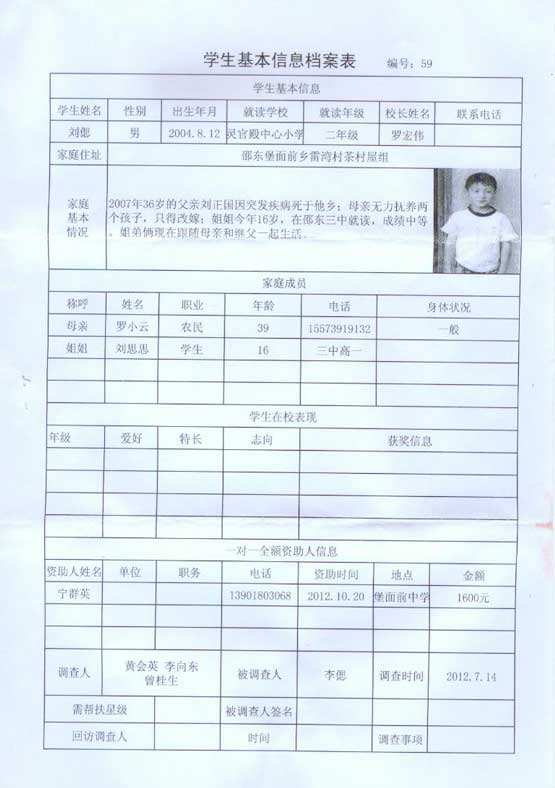 学生基本信息档案表 编号：59
学生基本信息
学生姓名 性别 出生年月 就读学校 就读年级 校长姓名 联系电话
刘偲 男 2004.8.12 灵官殿中心小学 二年级 罗宏伟
家庭住址 邵东堡面前乡雷湾村茶村屋组
家庭基本情况
2007年36岁的父亲刘正国因突发疾病死于他乡；母亲无力抚养两
个孩子，只得改嫁；姐姐今年16岁，在邵东三中就读，成绩中等
。姐弟俩现在跟随母亲和继父一起生活。
家庭成员
称呼 姓名 职业 年龄 电话 身体状况
母亲 罗小云 农民 39 15573919132 一般
姐姐 刘思思 学生 16 三中高一
学生在校表现
年级 爱好 特长 志向 获奖信息
一对一全额资助人信息
资助人姓名 单位 职务 电话 资助时间 地点 金额
宁群英 13901803068 2012.10.20 堡面前中学 1600元
调查人 黄会英 李向东 曾桂生 被调查人 李偲 调查时间 2012.7.14
需帮扶星级 被调查人签名
回访调查人 时间 调查事项